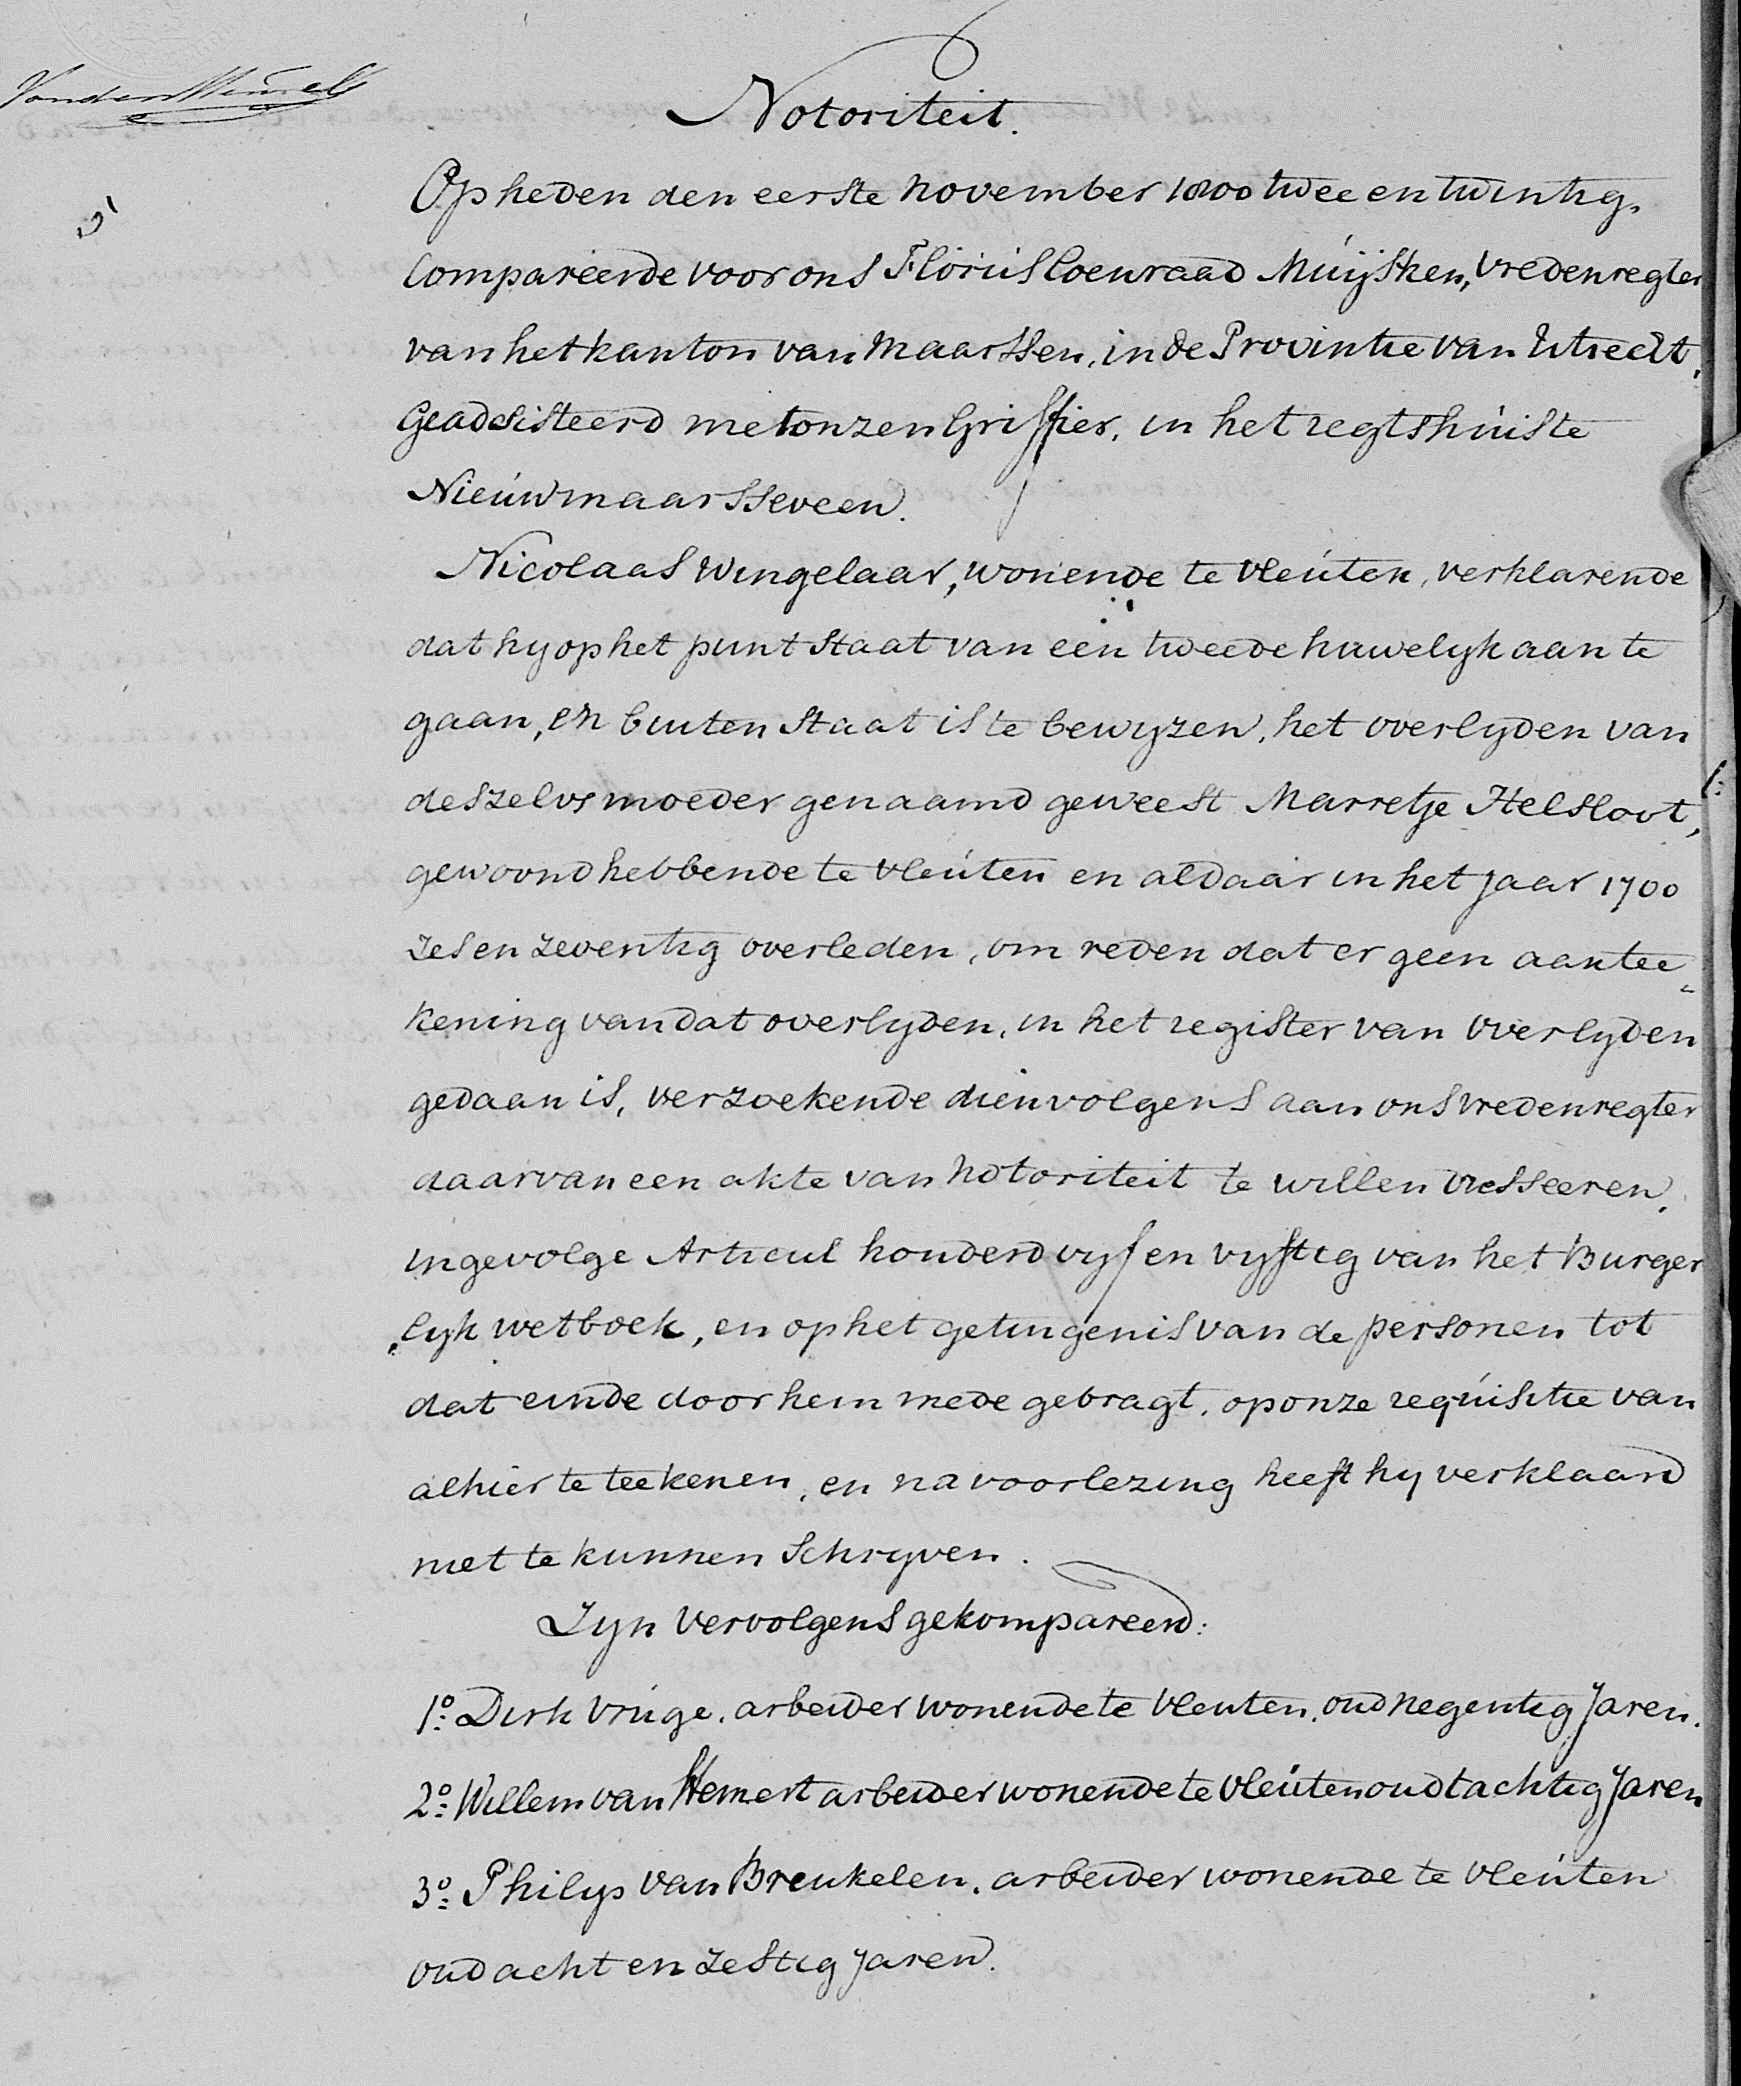 Notoriteit.
Op heden den eerste november 1800 twee en twintig.
Compareerde voor ons Floris Coenraad Muijsken, vredenregter
van het kanton van Maarssen, in de Provintie van Utrecht,
Geadsisteerd met onzen Griffier, in het regtshuis te
Nieuwmaarsseveen.
Nicolaas Wingelaar, wonende te Vleuten, verklarende
dat hy op het punt staat van een tweede huwelyk aan te
gaan, en buiten staat is te bewyzen, het overlyden van
deszelvs moeder genaamd geweest Marretje Helsloot,
gewoond hebbende te Vleuten en aldaar in het jaar 1700
zes en zeventig overleden, om reden dat er geen aantee„
kening van dat overlyden, in het register van overlyden
gedaan is, verzoekende dienvolgens aan ons vredenregter
daarvan een akte van notoriteit te willen dresseeren,
ingevolge Articul honderd vyf en vyftig van het Burger
„lyk wetboek, en op het getuigenis van de personen tot
dat einde door hem mede gebragt, op onze requisitie van
alhier te teekenen, en na voorlezing heeft hy verklaard
niet te kunnen schryven.
Zyn vervolgens gekompareerd:
1o: Dirk Vruge, arbeider wonende te Vleuten, oud negentig Jaren.
2o: Willem van Hemert arbeider wonende te Vleuten oud tachtig Jaren
3o: Philip van Breukelen, arbeider wonende te Vleuten
oud acht en zestig jaren.